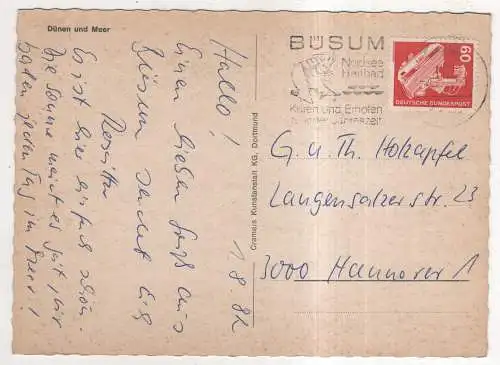 Dünen und Meer
Hallo!
1.8.82
Einen lieben Gruß aus
Büsum sendet Euch
Es ist hier einfach schön.
Die Sonne meint es gut, wir
baden jeden Tag im Meer!
Gramers Kunstanstalt KG, Dortmund
BÜSUM
Nordsee
Heilbad
Kuren und Erholen
zu jeder Jahreszeit
60
DEUTSCHE BUNDESPOST
G. u. Th. Holzapfel
Langensalzerstr. 23
3000 Hannover 1